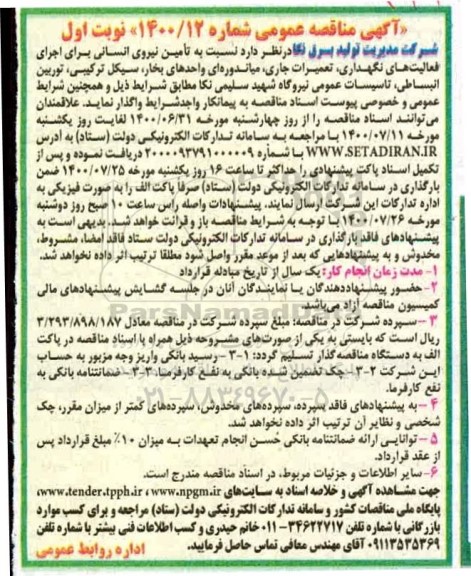 «آگهی مناقصه عمومی شماره ۱۴۰۰/۱۲» نوبت اول
شرکت مدیریت تولید برق نکا درنظر دارد نسبت به تأمین نیروی انسانی برای اجرای
فعالیت‌های نگهداری، تعمیرات جاری، میاندوره‌ای واحدهای بخار، سیکل ترکیبی، توربین
انبساطی، تاسیسات عمومی نیروگاه شهید سلیمی نکا مطابق شرایط ذیل و همچنین شرایط
عمومی و خصوصی پیوست اسناد مناقصه به پیمانکار واجدشرایط واگذار نماید. علاقمندان
می‌توانند اسناد مناقصه را از روز چهارشنبه مورخه ۱۴۰۰/۰۶/۳۱ لغایت روز یکشنبه
مورخه ۱۴۰۰/۰۷/۱۱ با مراجعه به سامانه تدارکات الکترونیکی دولت (ستاد) به آدرس
WWW.SETADIRAN.IR با شماره ۲۰۰۰۰۹۳۷۹۱۰۰۰۰۰۹ دریافت نموده و پس از
تکمیل اسناد پاکت پیشنهادی را حداکثر تا ساعت ۱۶ روز یکشنبه مورخه ۱۴۰۰/۰۷/۲۵ ضمن
بارگذاری در سامانه تدارکات الکترونیکی دولت (ستاد) صرفاً پاکت الف را به صورت فیزیکی به
اداره تدارکات این شرکت ارسال نمایند. پیشنهادات واصله راس ساعت ۱۰ صبح روز دوشنبه
مورخه ۱۴۰۰/۰۷/۲۶ با توجه به شرایط مناقصه باز و قرائت خواهد شد. بدیهی است به
پیشنهادهای فاقد بارگذاری در سامانه تدارکات الکترونیکی دولت ستاد فاقد امضا، مشروط،
مخدوش و به پیشنهادهایی که بعد از موعد مقرر واصل شود مطلقا ترتیب اثر داده نخواهد شد.
۱- مدت زمان انجام کار: یک سال از تاریخ مبادله قرارداد
۲- حضور پیشنهاددهندگان یا نمایندگان آنان در جلسه گشایش پیشنهادهای مالی
کمیسیون مناقصه آزاد می‌باشد.
۳- سپرده شرکت در مناقصه: مبلغ سپرده شرکت در مناقصه معادل ۳/۲۹۳/۸۹۸/۱۸۷
ریال است که بایستی به یکی از صورت‌های مشروحه ذیل همراه با اسناد مناقصه در پاکت
الف به دستگاه مناقصه‌گذار تسلیم گردد: ۳-۱- رسید بانکی واریز وجه مزبور به حساب
این شرکت ۳-۲- چک تضمین شده بانکی به نفع کارفرما. ۳-۳- ضمانتنامه بانکی به
نفع کارفرما.
۴- به پیشنهادهای فاقد سپرده، سپرده‌های مخدوش، سپرده‌های کمتر از میزان مقرر، چک
شخصی و نظایر آن ترتیب اثر داده نخواهد شد.
۵- توانایی ارائه ضمانتنامه بانکی حُسن انجام تعهدات به میزان ۱۰٪ مبلغ قرارداد پس
از عقد قرارداد.
۶- سایر اطلاعات و جزئیات مربوط، در اسناد مناقصه مندرج است.
جهت مشاهده آگهی و خلاصه اسناد به سایت‌های www.npgm.ir، www.tender.tpph.ir،
پایگاه ملی مناقصات کشور و سامانه تدارکات الکترونیکی دولت (ستاد) مراجعه و برای کسب موارد
بازرگانی با شماره تلفن ۳۴۶۲۲۷۱۷-۰۱۱ خانم حیدری و کسب اطلاعات فنی بیشتر با شماره تلفن
۰۹۱۱۳۵۳۵۳۶۹ آقای مهندس معافی تماس حاصل فرمایید.
اداره روابط عمومی
ParsNamadData
۰۲۱-۸۸۳۴۹۶۷۰-۵